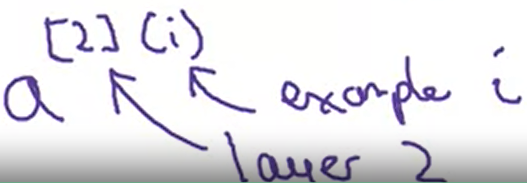 [2](i)
a
example i
layer 2